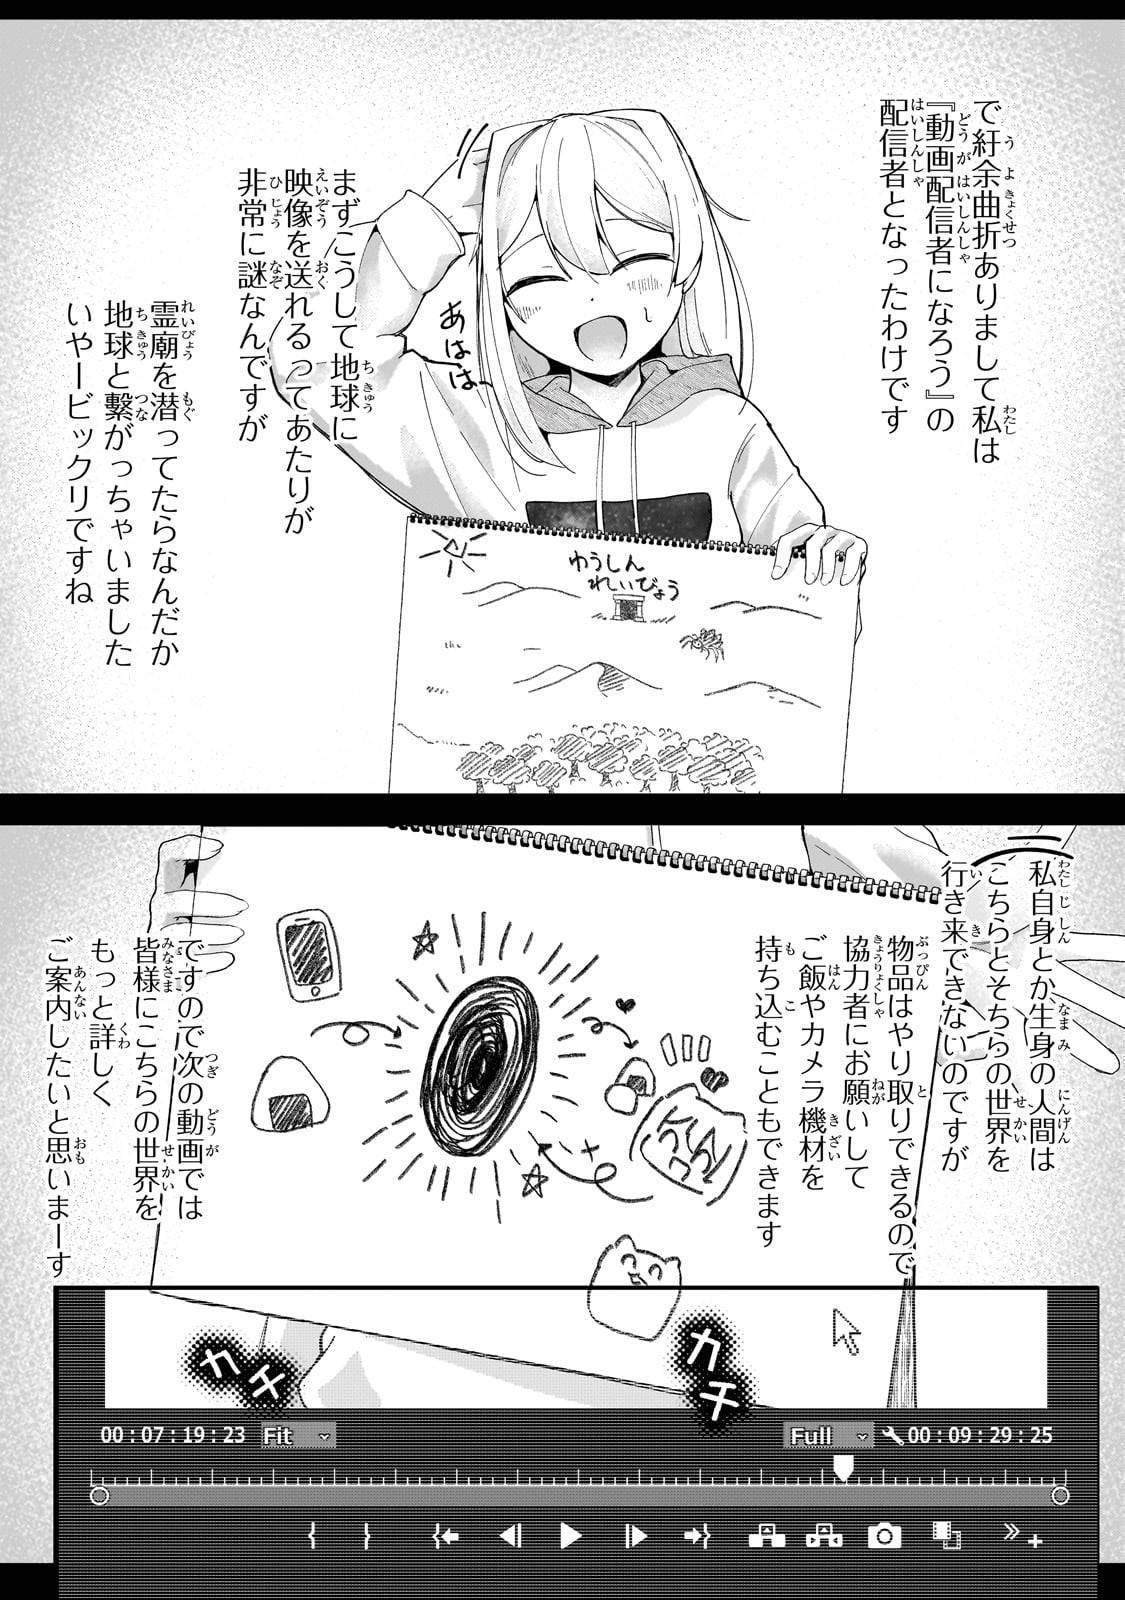 で紆余曲折ありまして私は
『動画配信者になろう』の
配信者となったわけです
まずこうして地球に
映像を送れるってあたりが
非常に謎なんですが
あはは
霊廟を潜ってたらなんだか
地球と繋がっちゃいました
いやービックリですね
ゆうしん
れいびょう
私自身とか生身の人間は
こちらとそちらの世界を
行き来できないのですが
物品はやり取りできるので
協力者にお願いして
ご飯やカメラ機材を
持ち込むこともできます
ですので次の動画では
皆様にこちらの世界を
もっと詳しく
ご案内したいと思いまーす
カチ
カチ
00:07:19:23 Fit
Full 00:09:29:25